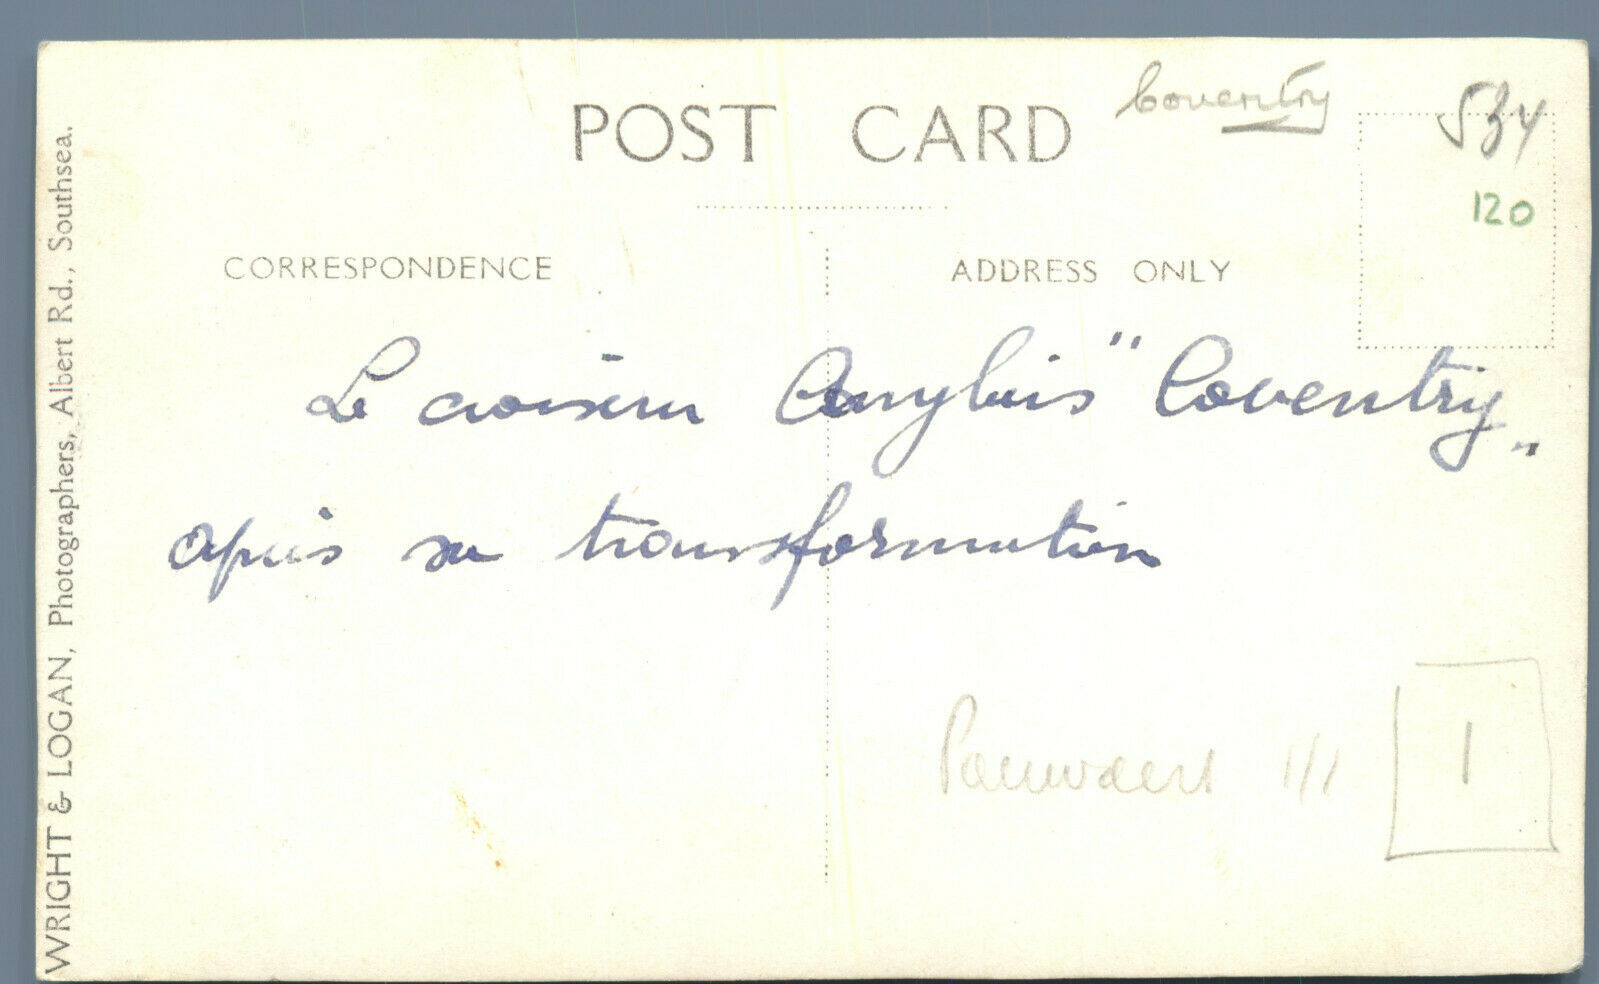 POST CARD
Coventry
534
120
CORRESPONDENCE
ADDRESS ONLY
Le croiseur Anglais "Coventry„
après sa transformation
111
1
WRIGHT & LOGAN, Photographers, Albert Rd., Southsea.